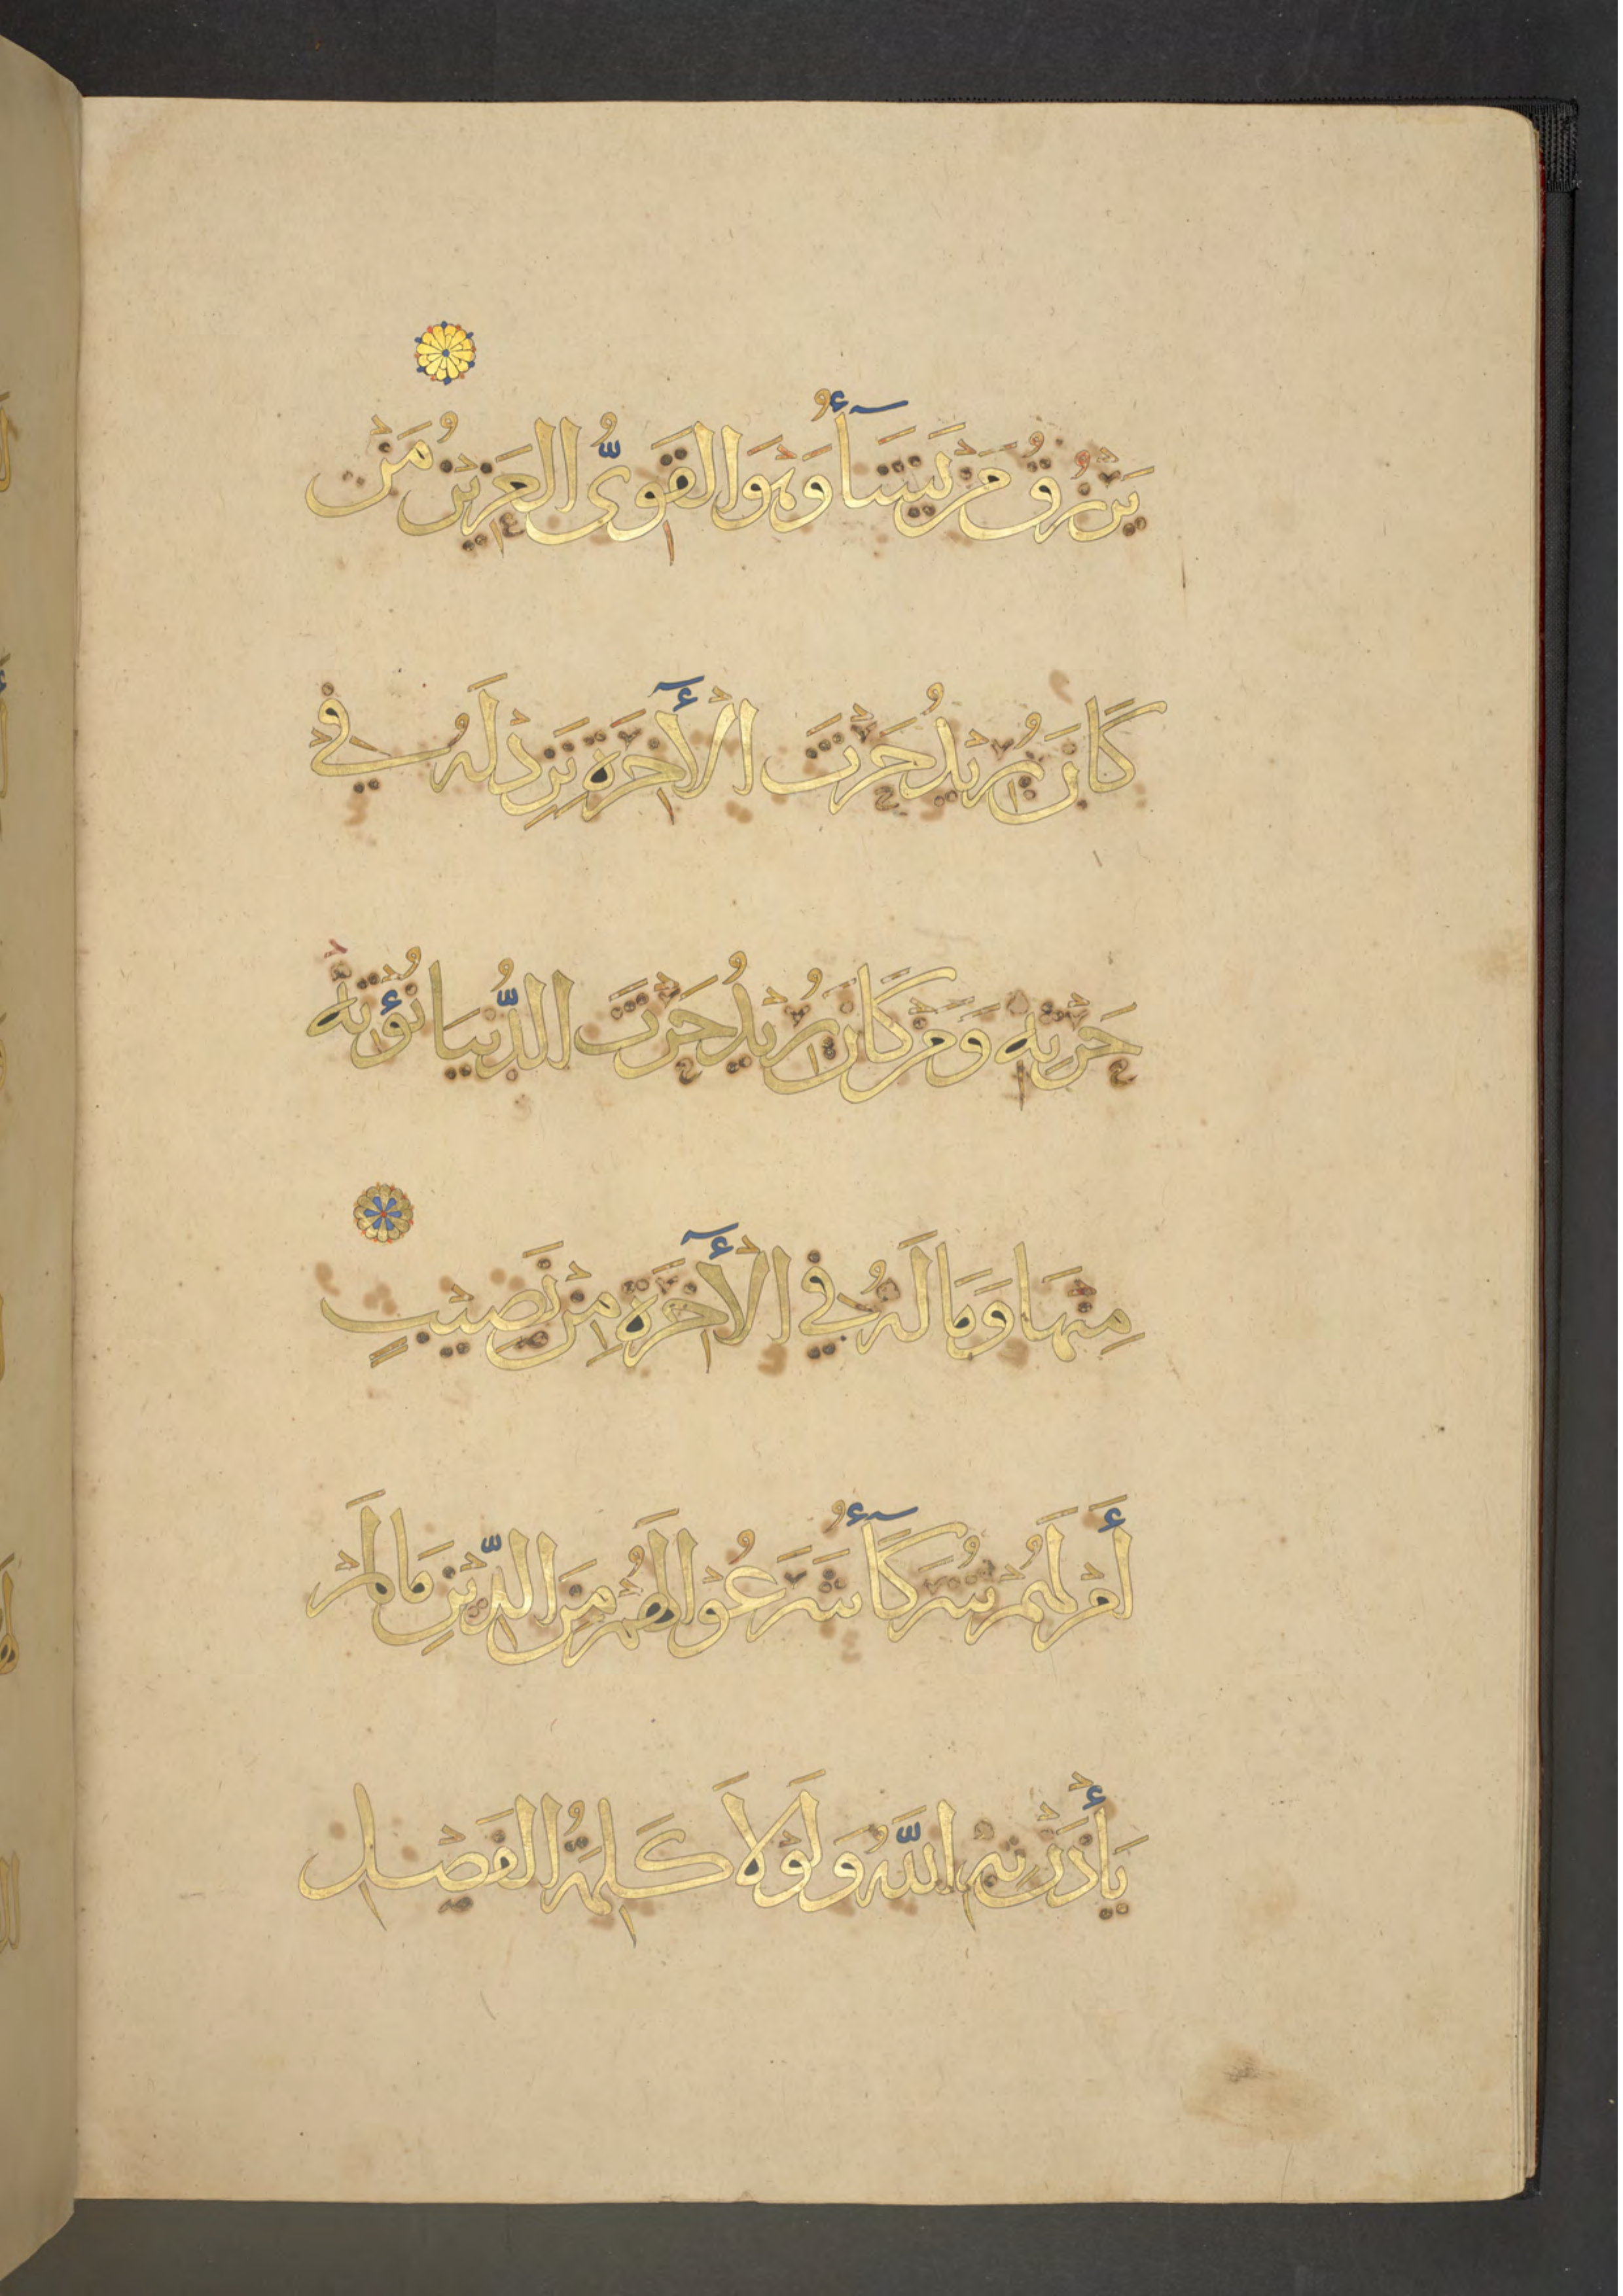 يَرْزُقُ مَنْ يَشَآءُ وَهْوَ الْقَوِىُّ الْعَزِيْزُ مَنْ
كَانَ يُرِيْدُ حَرْثَ الْأٓخِرَةِ نَزِدْ لَهُ فِيْ
حَرْثِهِ وَمَنْ كَانَ يُرِيْدُ حَرْثَ الدُّنْيَا نُؤْتِهْ
مِنْهَا وَمَا لَهُ فِي الْأٓخِرَةِ مِنْ نَصِيْبٍ
أَمْ لَهُمْ شُرَكَآءُ شَرَعُوْا لَهُمْ مِنَ الدِّيْنِ مَا لَمْ
يَأْذَنْ بِهِ اللّٰهُ وَلَوْلَا كَلِمَةُ الْفَصْلِ